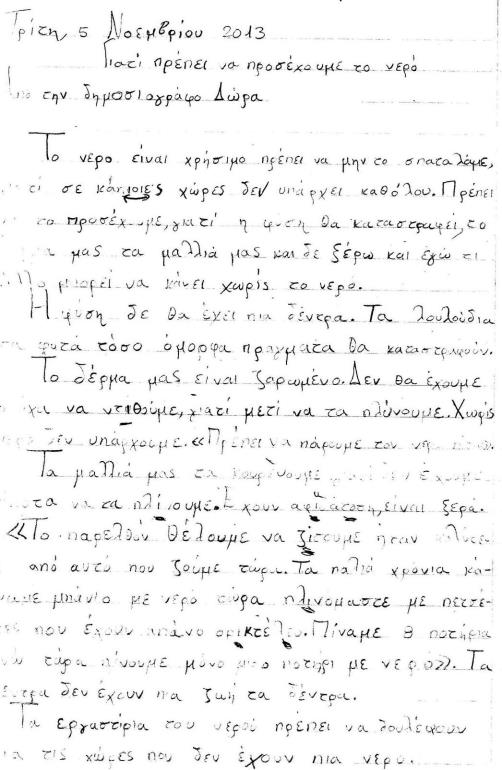 Τρίτη 5 Νοεμβρίου 2013
Γιατί πρέπει να προσέχουμε το νερό
την δημοσιογράφο Δώρα
Το νερο είναι χρήσιμο πρέπει να μην το σπαταλάμε,
σε κάποιες χώρες δεν υπάρχει καθόλου. Πρέπει
το προσέχουμε, γιατί η φυση θα καταστραφεί, το
μας τα μαλλιά μας και δε ξέρω και εγώ τι
μπορεί να κάνει χωρίς το νερο.
Η φύση δε θα έχει πια δέντρα. Τα λουλούδια
φυτά τόσο όμορφα πραγματα θα καταστραφούν.
Το δέρμα μας είναι ζαρωμένο. Δεν θα έχουμε
να ντιθούμε, γιατί μετί να τα πλύνουμε. Χωρίς
δεν υπάρχουμε. «Πρέπει να πάρουμε τον
Τα μαλλιά μας τα
να τα πλίνουμε. Έχουν αφιματοτη, είναι ξερά.
«Το παρελθών θέλουμε να ζίσουμε ήταν
από αυτό που ζούμε τώρα. Τα παλιά χρόνια κά-
ναμε μπάνιο με νερό τώρα πλινομαστε με πετσέ-
τες που έχουν απάνο ορικτέλεο. Πίναμε 8 ποτήρια
τώρα πίνουμε μόνο μισο ποτήρι με νερό». Τα
δεν έχουν πια ζωή τα δέντρα.
Τα εργαστίρια του νερού πρέπει να δουλέψουν
για τις χώρες που δεν έχουν πια νερο.